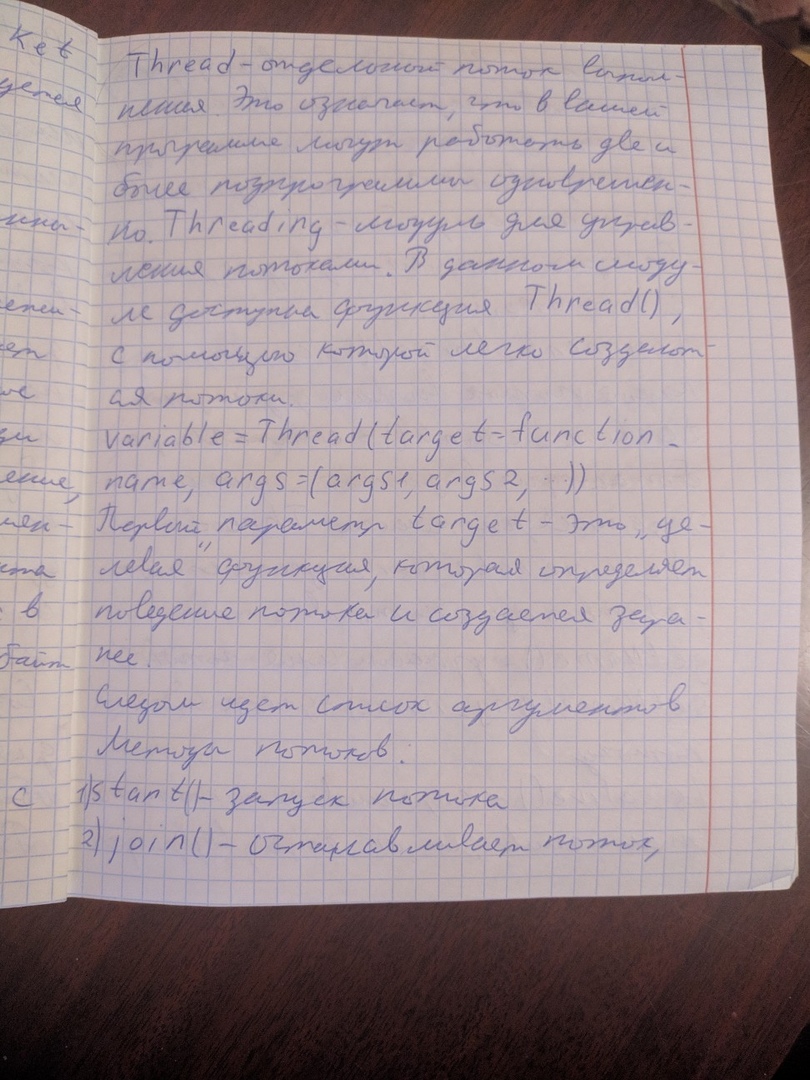 Ket
Thread - отдельный поток выпол-
нения. Это означает, что в вашей
программе могут работать две и
более подпрограммы одновремен-
но. Threading - модуль для управ-
ления потоками. В данном моду-
ле доступна функция Thread(),
с помощью которой легко создают-
ся потоки.
variable = Thread(target=function_
name, args=(args1, args2, ...))
Первый параметр target - это „це-
левая" функция, которая определяет
поведение потока и создается зара-
в
нее.
байт
Следом идет список аргументов
Методы потоков:
с
1) start() - запуск потока
2) join() - останавливает поток,